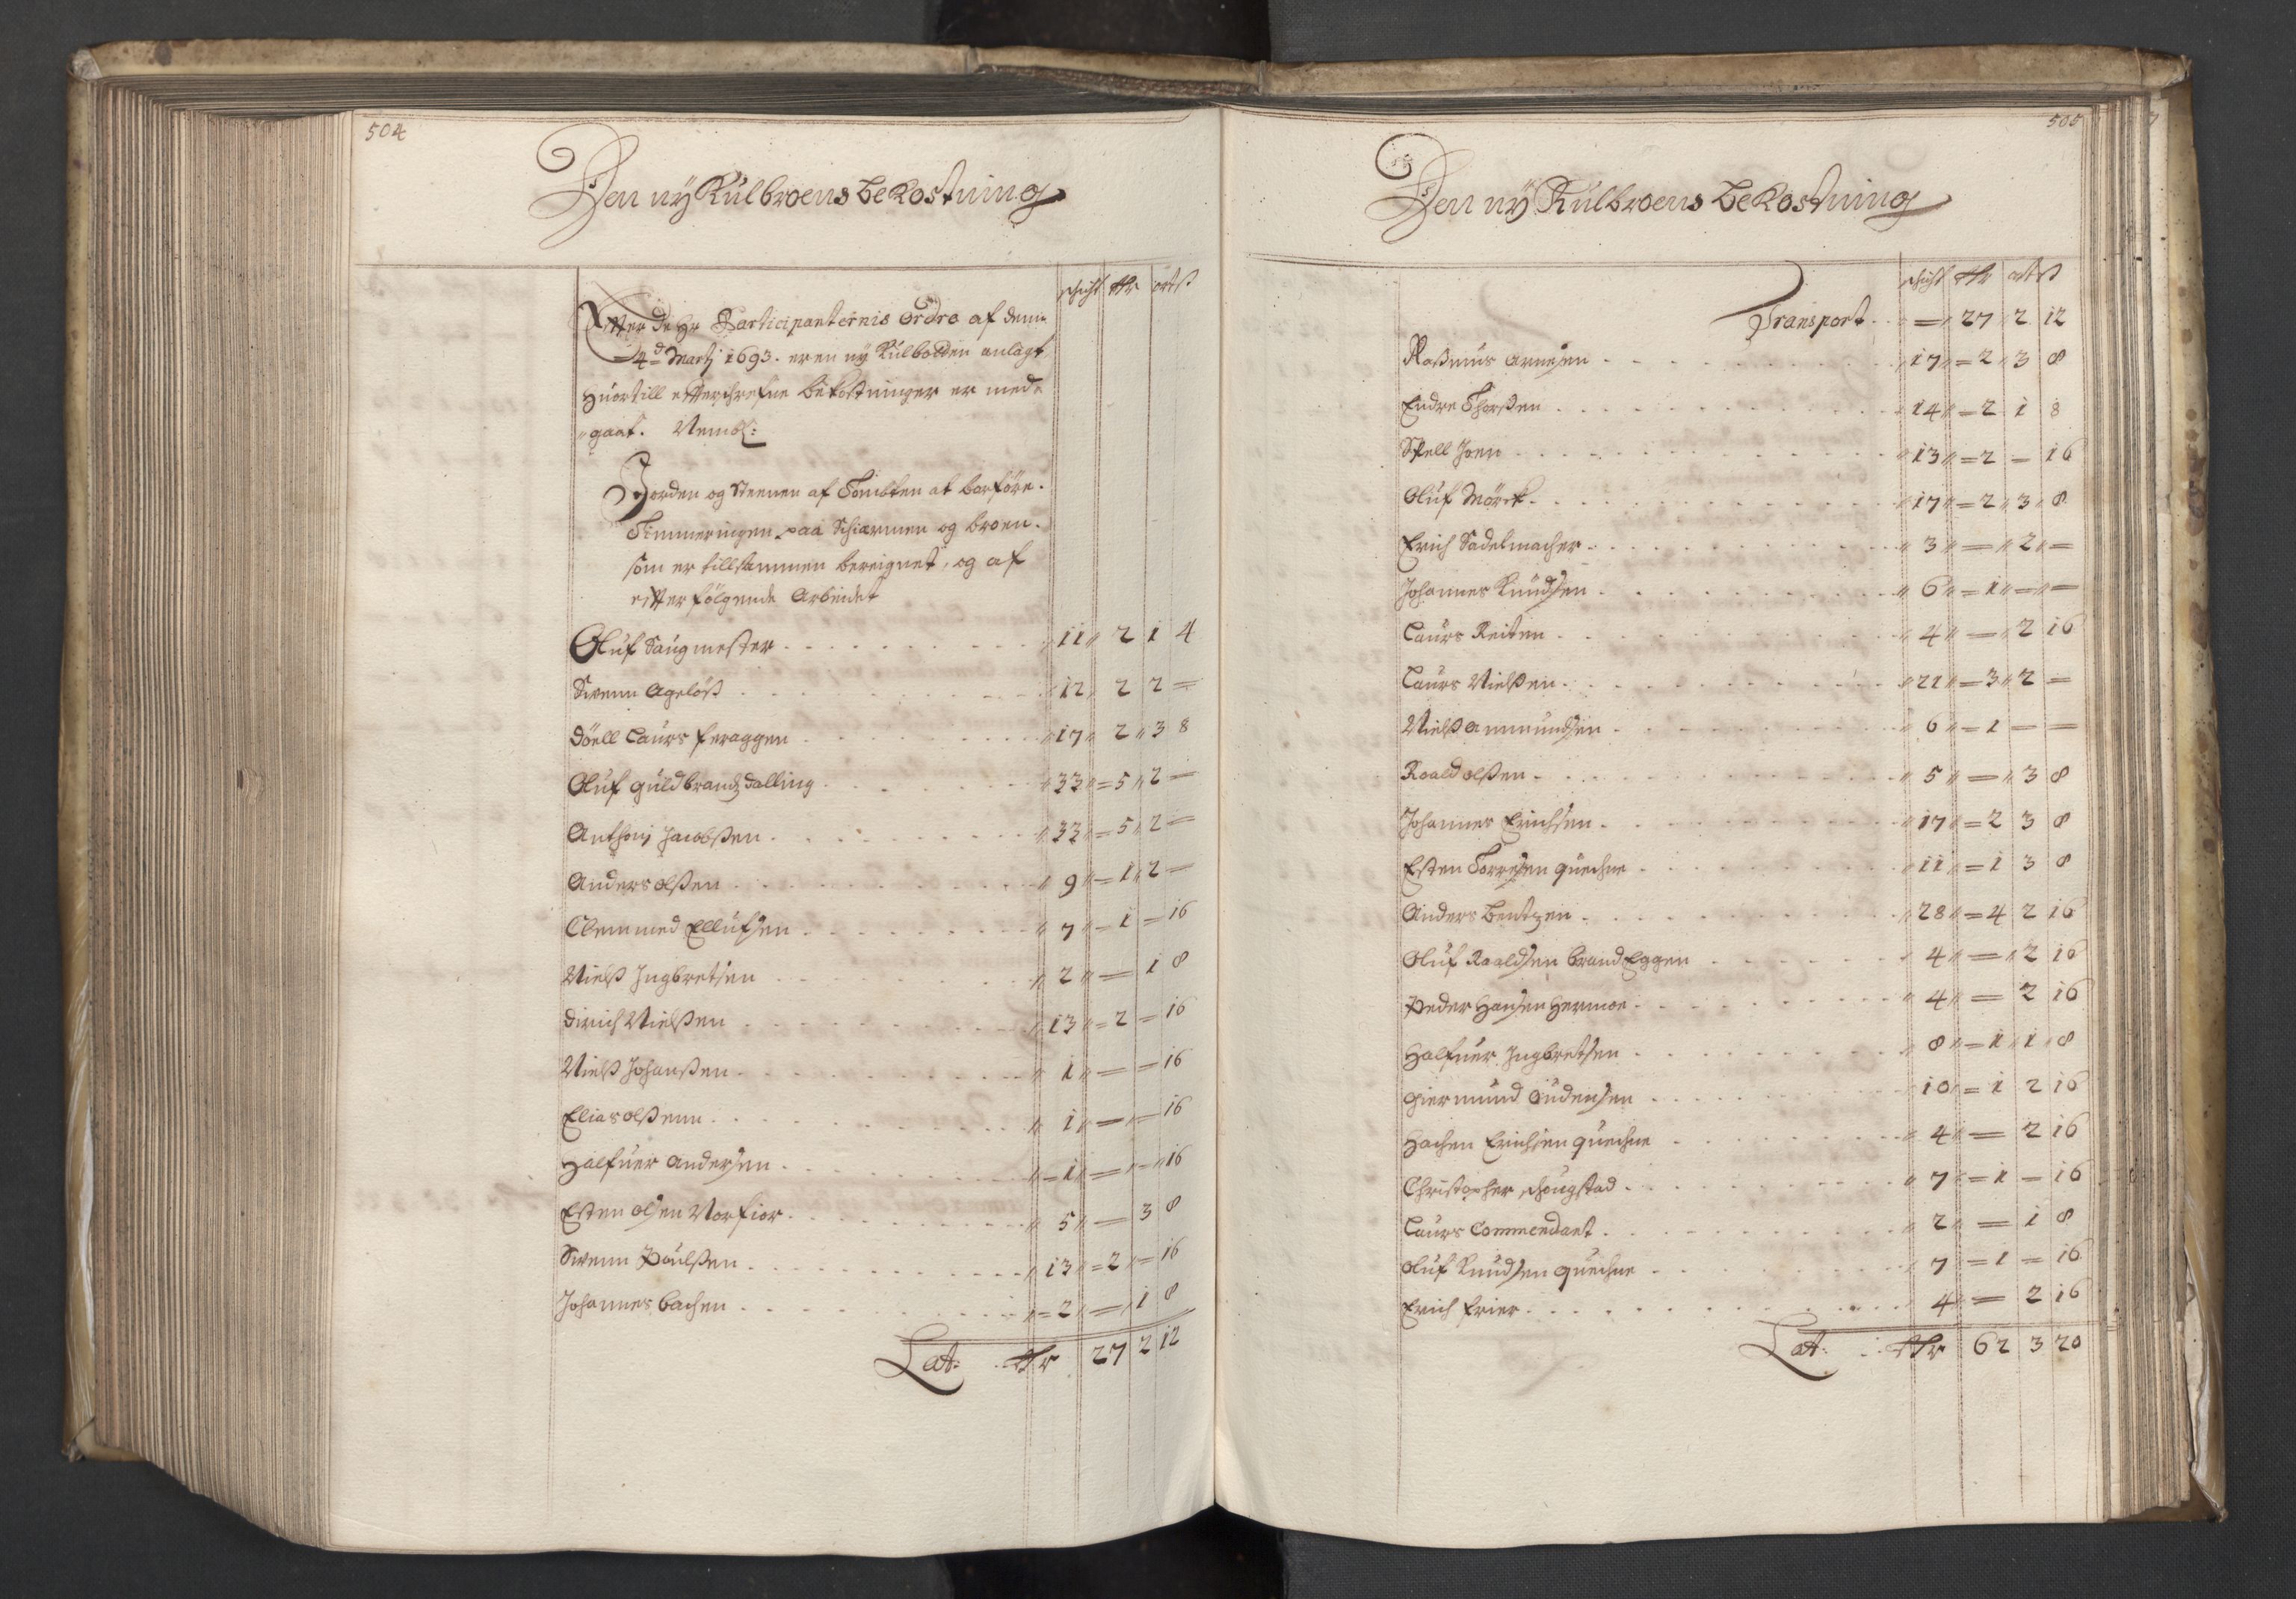 504
Den nÿ Kulbroens Bekostning
schicht Rdr ort ß
Efter De Hr Participanternis Ordre af dem
4d Martj 1693. er en nÿ Kulbolden anlagt
Huortill efterschrefne bekostninger er med
gaat. Nembl:
Jorden og Steenen af Tombten at borføre.
Timmeringen paa Schiermen og broen.
som er tillsammen bereignet, og af
efterfølgende Arbeidet
Oluf Saugmester 11 2 1 4
Swenn Ageløst 12 2 2 =
Døell Laurs feraggen 17 2 3 8
Oluf Guldbrandzdalling 33 = 5 2 =
Anthonj Jacobßen 33 = 5 2 =
Anders olßen 9 = 1 2 =
Clemmed Ellufsen 7 = 1 = 16
Nielß Ingbretsen 2 = 1 8
Dirich Nielßen 13 = 2 = 16
Nielß Johanßen 1 = = 16
Elias olßenn 1 = = 16
Halfuer Andersen = 1 = = 16
Esten olsen Norfior 5 = 3 8
Swenn Poulßen 13 = 2 = 16
Johannes bachen = 2 = 1 8
Lat: Rdr 27 2 12
505
Den nÿ Kulbroens Bekostning
schicht Rdr ort ß
Transport = 27 2 12
Raßmus Arnesen 17 = 2 3 8
Endre Thorßen 14 = 2 1 8
Joen 13 = 2 = 16
Oluf Mörck 17 = 2 3 8
Erich Sadelmacher 3 = 2 =
Johannes Knudsen 6 = 1 = =
Laurs Reiten 4 = 2 16
Laurs Nielßen 21 = 3 2 =
Nielß Ammundsen 6 = 1 = =
Roald olßen 5 = 3 8
Johannes Erichsen 17 = 2 3 8
Esten Torresen Quechne 11 = 1 3 8
Anders Bentzen 28 = 4 2 16
Oluf Roaldsen brandEggen 4 = 2 16
Peder Hansen Hermoe 4 = 2 16
Halfuer Ingbretsen 8 = 1 1 8
Giermund Oudensen 10 = 1 2 16
Hachen Erichsen Quechne 4 = 2 16
Christopher schougstad 7 = 1 = 16
Laurs Commendant 2 = 1 8
Oluf Knudsen Quechne 7 = 1 = 16
Erich frier 4 = 2 16
Lat: Rdr 62 3 20